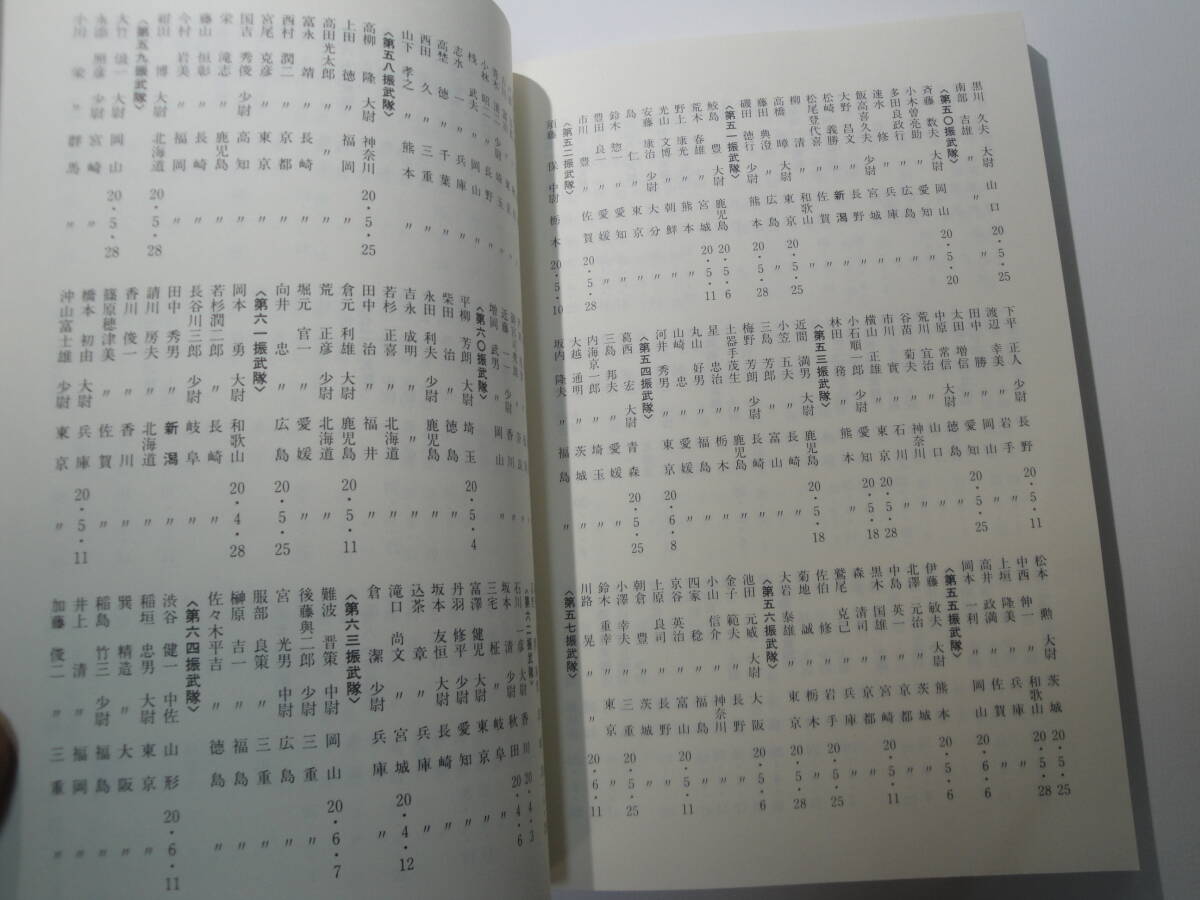 黒川 久夫 大尉 山口 20・5・25
南部 吉雄 〃 〃
〈第五〇振武隊〉
斉藤 数夫 大尉 岡山 20・5・20
小木曽亮助 〃 愛知 〃
多田良政行 〃 広島 〃
速水 修 〃 兵庫 〃
飯高喜久夫 少尉 宮城 〃
大野 昌文 〃 長野 〃
松崎 義勝 〃 新潟 〃
松尾登代喜 〃 佐賀 〃
柳 清 〃 和歌山 〃
高橋 暲 大尉 東京 20・5・25
藤田 典澄 〃 広島 〃
磯田 徳行 少尉 熊本 〃
〈第五一振武隊〉
鮫島 豊 大尉 鹿児島 20・5・6
荒木 春雄 〃 宮城 20・5・11
野上 康光 〃 熊本 〃
光山 文博 〃 朝鮮 〃
安藤 康治 少尉 大分 〃
島 仁 〃 東京 〃
鈴木 惣一 〃 愛知 〃
豊田 良一 〃 愛媛 〃
市川 豊 〃 佐賀 20・5・28
〈第五二振武隊〉
須藤 保 中尉 栃木 20・5・10
下平 正人 少尉 長野 20・5・11
渡辺 幸美 〃 岩手 〃
田中 勝 〃 岡山 〃
太田 増信 〃 愛知 20・5・25
中原 常信 大尉 徳島 〃
荒川 宜治 〃 山口 〃
谷苗 菊夫 〃 神奈川 〃
市川 實 〃 石川 〃
横山 正雄 〃 東京 20・5・28
小石順一郎 少尉 愛知 20・5・18
林田 務 〃 熊本 〃
〈第五三振武隊〉
近間 満男 大尉 鹿児島 20・5・18
小笠 五夫 〃 長崎 〃
三島 芳郎 〃 富山 〃
梅野 芳朗 少尉 長崎 〃
土器手茂生 〃 鹿児島 〃
星 忠治 〃 栃木 〃
丸山 好男 〃 福島 〃
山崎 忠 〃 愛媛 〃
河井 秀男 〃 東京 20・6・8
〈第五四振武隊〉
葛西 宏 大尉 青森 20・5・25
三島 邦夫 〃 愛媛 〃
内海京一郎 〃 埼玉 〃
大越 通明 〃 茨城 〃
坂内 隆夫 〃 福島 〃
松本 勲 大尉 茨城 20・5・25
中西 伸一 〃 和歌山 20・5・28
上垣 隆美 〃 兵庫 〃
高井 政満 〃 佐賀 〃
岡本 一利 〃 岡山 20・6・6
〈第五五振武隊〉
伊藤 敏夫 大尉 熊本 20・5・6
北澤 元治 〃 茨城 〃
中島 英一 〃 京都 〃
黒木 国雄 〃 宮崎 20・5・11
森 清司 〃 京都 〃
鷲尾 克己 〃 兵庫 〃
佐伯 修 〃 岩手 〃
菊地 誠 〃 栃木 〃
大岩 泰雄 〃 東京 20・5・28
〈第五六振武隊〉
池田 元威 大尉 大阪 20・5・6
金子 範夫 〃 長野 〃
小山 信介 〃 神奈川 〃
四家 稔 〃 福島 〃
京谷 英治 〃 富山 20・5・11
上原 良司 〃 長野 〃
朝倉 豊 〃 茨城 〃
小澤 幸夫 〃 三重 20・5・25
鈴木 重幸 〃 東京 〃
川路 晃 〃 〃 20・6・11
〈第五七振武隊〉
小林 昭二 〃
桟 武夫 〃 長野 〃
志水 一 〃 岡山 〃
高埜 徳 〃 兵庫 〃
西田 久 〃 千葉 〃
山下 孝之 〃 三重 〃
熊本 〃
〈第五八振武隊〉
高柳 隆 大尉 神奈川 20・5・25
上田 徳 〃 福岡 〃
高田光太郎 〃 〃 〃
富永 靖 〃 長崎 〃
西村 潤二 〃 京都 〃
宮尾 克彦 〃 東京 〃
国吉 秀俊 少尉 高知 〃
栄 滝志 〃 鹿児島 〃
藤山 恒彰 〃 長崎 〃
今村 岩美 〃 福岡 〃
紺田 博 大尉 北海道 20・5・28
〈第五九振武隊〉
大竹 儀一 大尉 岡山 20・5・28
永添 照彦 少尉 宮崎 〃
小川 栄 〃 群馬 〃
増岡 武男 〃 岡山 〃
〈第六〇振武隊〉
平柳 芳朗 大尉 埼玉 20・5・4
柴田 治 〃 徳島 〃
永田 利夫 少尉 鹿児島 〃
吉永 成明 〃 〃 〃
若杉 正喜 〃 北海道 〃
田中 治 〃 福井 〃
倉元 利雄 大尉 鹿児島 20・5・11
荒 正彦 少尉 北海道 〃
堀元 官一 〃 愛媛 〃
向井 忠 〃 広島 20・5・25
〈第六一振武隊〉
岡本 勇 大尉 和歌山 20・4・28
若杉潤二郎 〃 長崎 〃
長谷川三郎 少尉 岐阜 〃
田中 秀男 〃 新潟 〃
請川 房夫 〃 北海道 〃
香川 俊一 〃 香川 〃
篠原穂津美 〃 佐賀 〃
橋本 初由 大尉 兵庫 20・5・11
沖山富士雄 少尉 東京 〃
〈第六二振武隊〉
石川 一彦 大尉 香川 20・4・3
坂本 清 少尉 秋田 20・4・6
三宅 柾 〃 岐阜 〃
富澤 健児 大尉 東京 〃
丹羽 修平 少尉 愛知 〃
坂本 友恒 大尉 長崎 〃
込茶 章 〃 兵庫 〃
滝口 尚文 〃 宮城 20・4・12
倉 潔 少尉 兵庫 〃
〈第六三振武隊〉
難波 晋策 中尉 岡山 20・6・7
後藤與二郎 少尉 三重 〃
宮 光男 中尉 広島 〃
服部 良策 少尉 三重 〃
榊原 吉一 〃 福島 〃
佐々木平吉 〃 徳島 〃
〈第六四振武隊〉
渋谷 健一 中佐 山形 20・6・11
稲垣 忠男 大尉 東京 〃
巽 精造 〃 大阪 〃
稲島 竹三 少尉 福島 〃
井上 清 〃 福岡 〃
加藤 俊二 〃 三重 〃